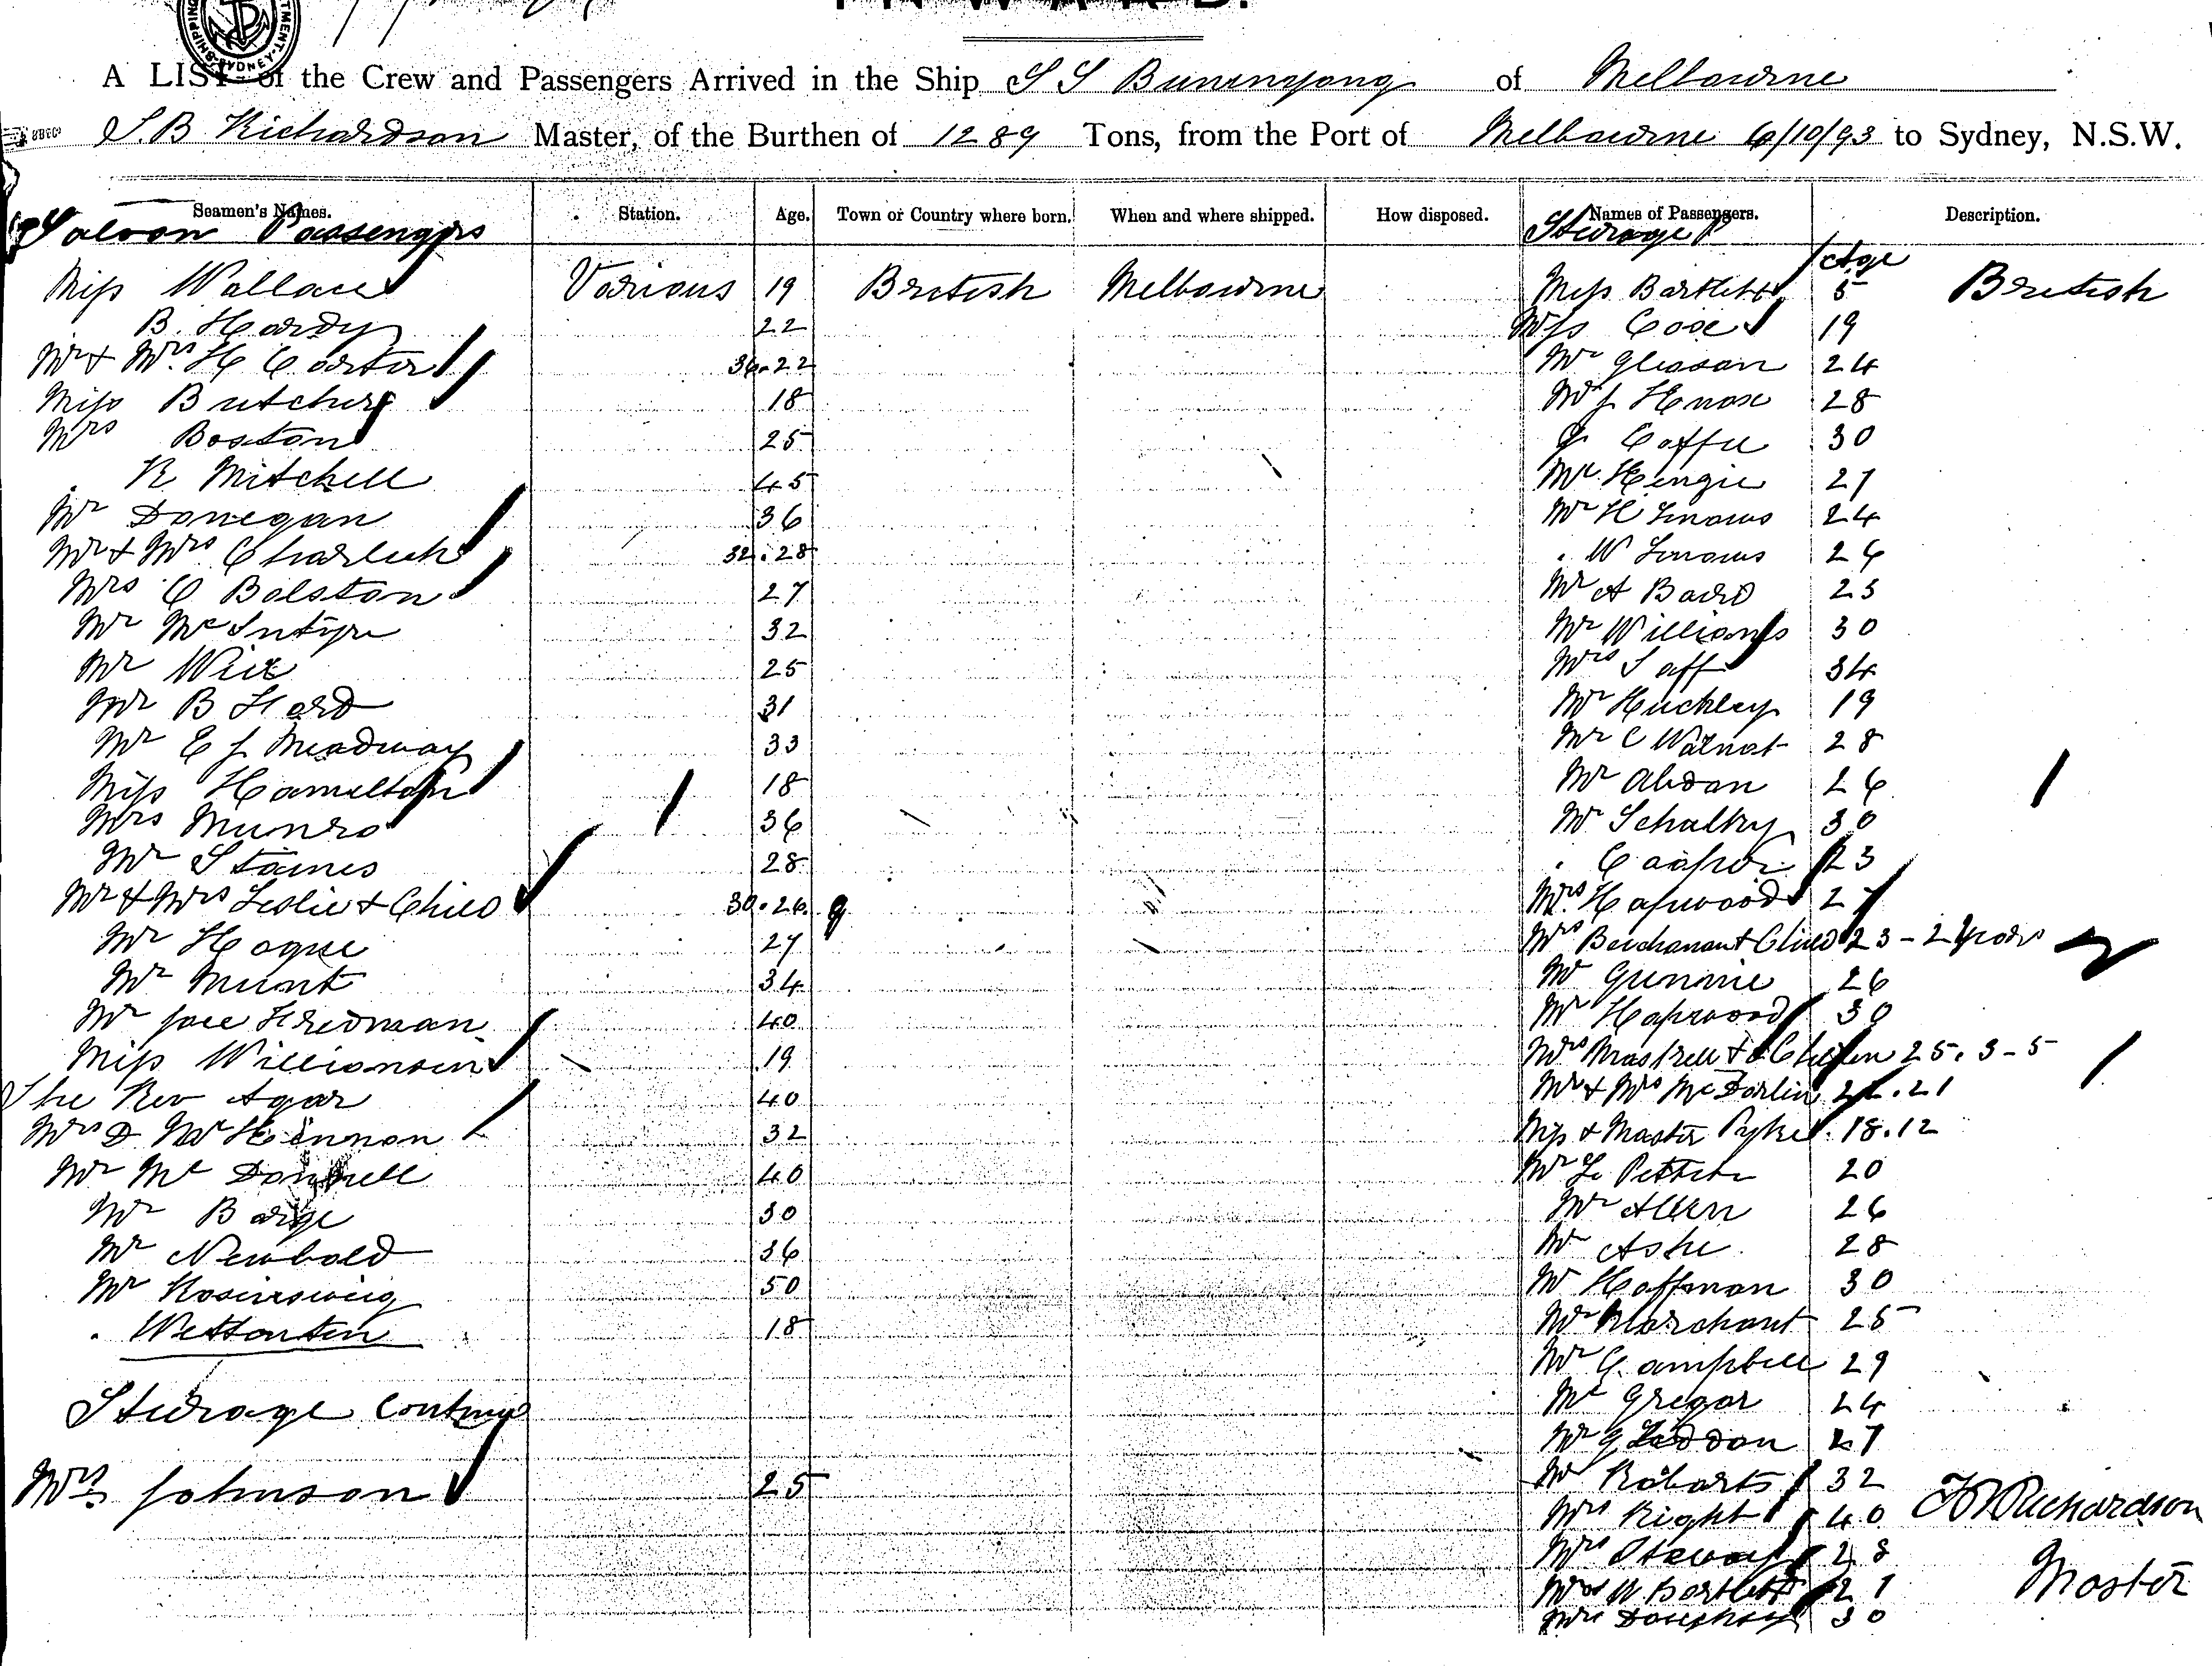 INWARD.
A LIST of the Crew and Passengers Arrived in the Ship S S Buninyong of Melbourne
S.B Richardson Master, of the Burthen of 1289 Tons, from the Port of Melbourne 6/10/93 to Sydney, N.S.W.
Seamen's Names. Station. Age. Town or Country where born. When and where shipped. How disposed. Names of Passengers. Description.
Saloon Passengers
Miss Wallace Various 19 British Melbourne
B. Hardy 22
Mr & Mrs H Carter 36.22
Miss Butcher 18
Mrs Boston 25
R Mitchell 45
Mr Donegan 36
Mr & Mrs 32.28
Mrs C Bolston 27
Mr McIntyre 32
Mr 25
Mr B Hard 31
Mr E J Meadway 33
Miss Hamilton 18
Mrs Munro 36
Mr Staines 28
Mr & Mrs Leslie & Child 30.26. 9
Mr Hogue 27
Mr Munt 34
Mr Joe Fredman 40
Miss Williamson 19
The Rev Agar 40
Mrs D 32
Mr Mc Donnell 40
Mr Barge 30
Mr Newbold 36
Mr 50
18
Steerage
Mrs Johnson 25
Steerage P
Age
Miss Bartlett 5 British
Miss Cox 19
Mr Gleason 24
Mr J Knox 28
J 30
Mr 27
Mr H 24
W 26
Mr A Baird 23
Mr Williams 30
Mrs 34
Mr Huckley 19
Mr C 28
Mr 26
Mr 30
Cooper 23
Mrs Hapwood 27
Mrs Buchanan & Child 23 - 2 years
Mr 26
Mr Hapwood 30
Mrs & 2 Children 25. 3-5
Mr & Mrs 21
Miss & Master Pyke 18.12
Mr 20
Mr Allen 26
Mr Ashe 28
Mr Hoffman 30
Mr Marchant 25
Mr Campbell 29
Mc Gregor 24
Mr 27
Mr Robarts 32
Mrs Right 40
Mrs 28
Mrs W Bartlett 27
Mrs 30
Richardson
Master
SHIPPING
SYDNEY